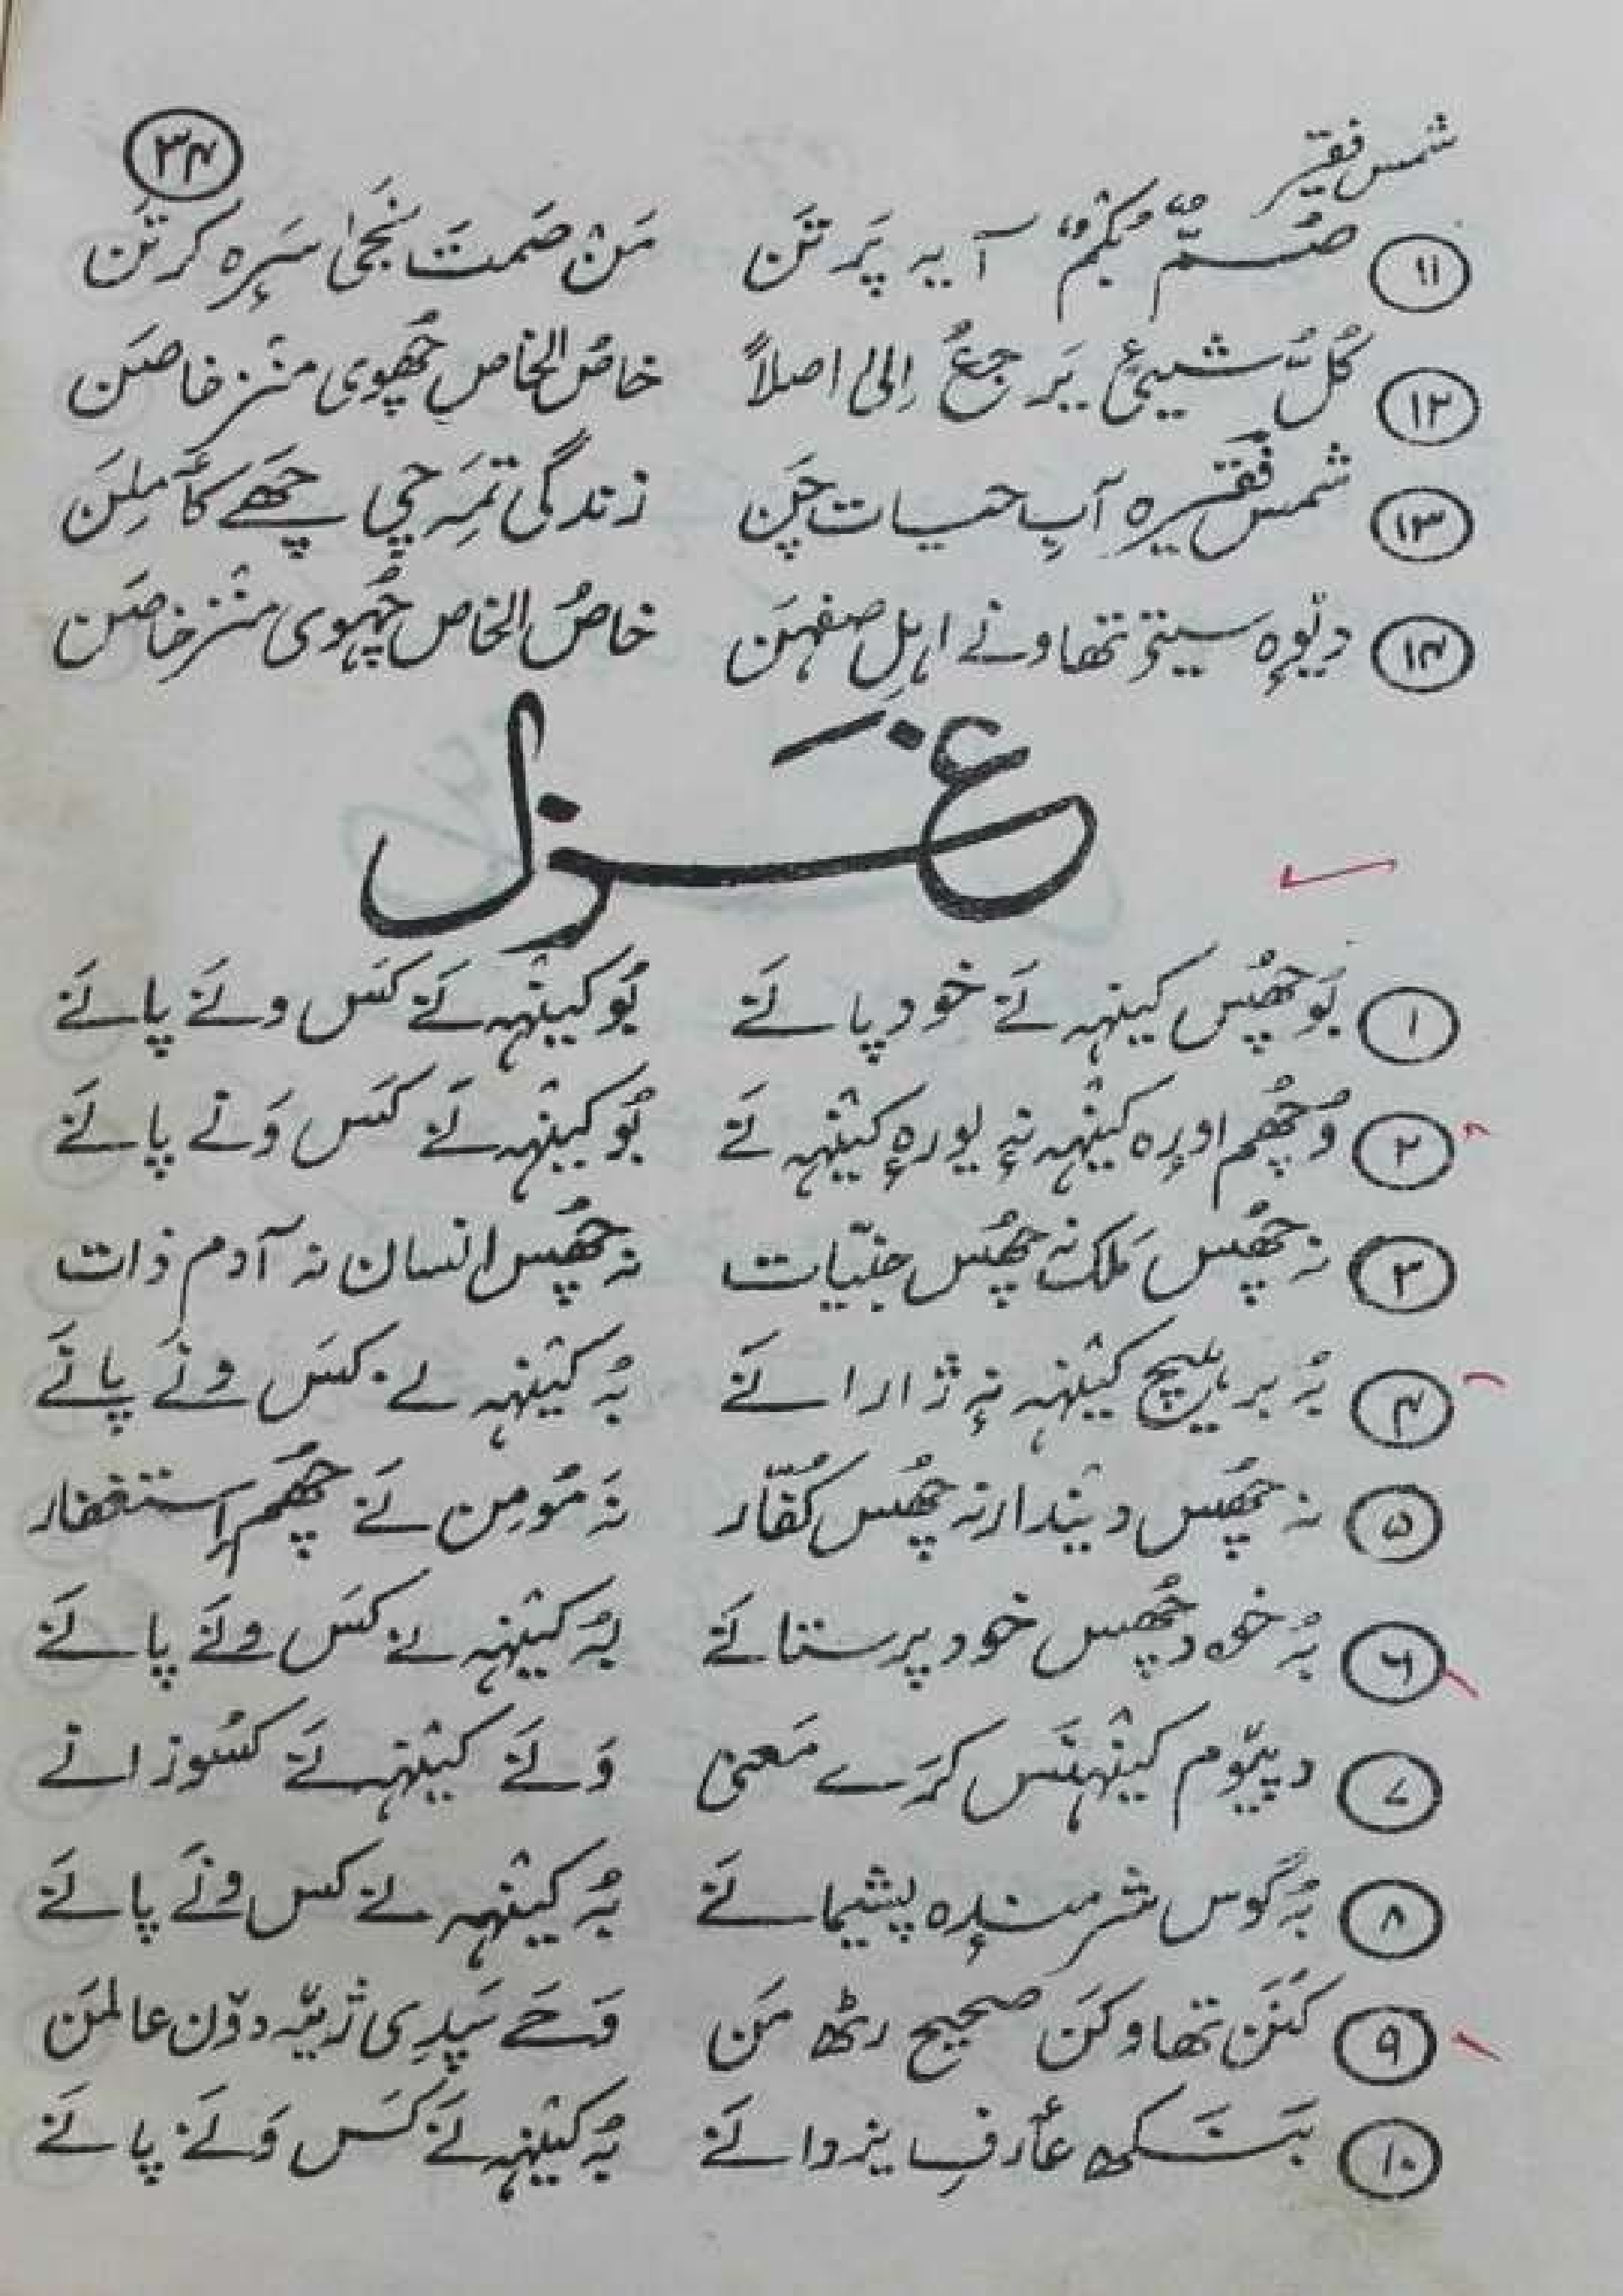 ۳۴
شمس فقیر
۱۱ صُمٌّ بُکْمٌ آیہ پَر تَن مَنْ صَمتَ نَجیٰ سَرٕہ کَر تَن
۱۲ کُلُّ شیئیٍ یَرجعُ اِلیٰ اصلاً خاصُ الخاص چھُوی منٛز خاصَن
۱۳ شمس فقیرہ آبِ حیات چَن زندگی تمَہ چی چھَے کأملِن
۱۴ دیوٕہ سیتۍ تھاونے اہلِ صفہَن خاصُ الخاص چھُوی منٛز خاصَن
غزل
۱ بَو چھُس کینہہ نَے خود پانَے بُو کینٛہہ نَے کَس ونَے پانَے
۲ وُچھُم اورٕہ کینٛہہ نہٕ یورٕہ کینٛہہ نَے بُو کینٛہہ نَے کَس وَنَے پانَے
۳ نہ چھُس مَلک نہ چھُس جنّیات نہ چھُس انسان نہ آدم ذات
۴ بُہ بر ہیچ کینٛہہ نہٕ ژارانَے بُہ کینٛہہ نے کَس ونَے پانَے
۵ نہ چھُس دیندار نہ چھُس کُفّار نَہ مُومِن نَے چھُم اِستغفار
۶ بُہ خود چھُس خود پرستانَے بُہ کینٛہہ نے کَس ونَے پانَے
۷ دپیوم کینٛہنَس کرَے مَعنیٰ وَنَے کینٛہہ نَے کسُو زانے
۸ بُہ گوس شرمندٕہ پشیمانَے بُہ کینٛہہ نے کس ونَے پانَے
۹ کَنَن تھاو کَن صحیح رٹھ مَن وَحَے سَپدِی ژیہ دۄن عالمَن
۱۰ بَتَہ کھ عأرفِ یزدانَے بُہ کینٛہہ نَے کَس وَنَے پانَے